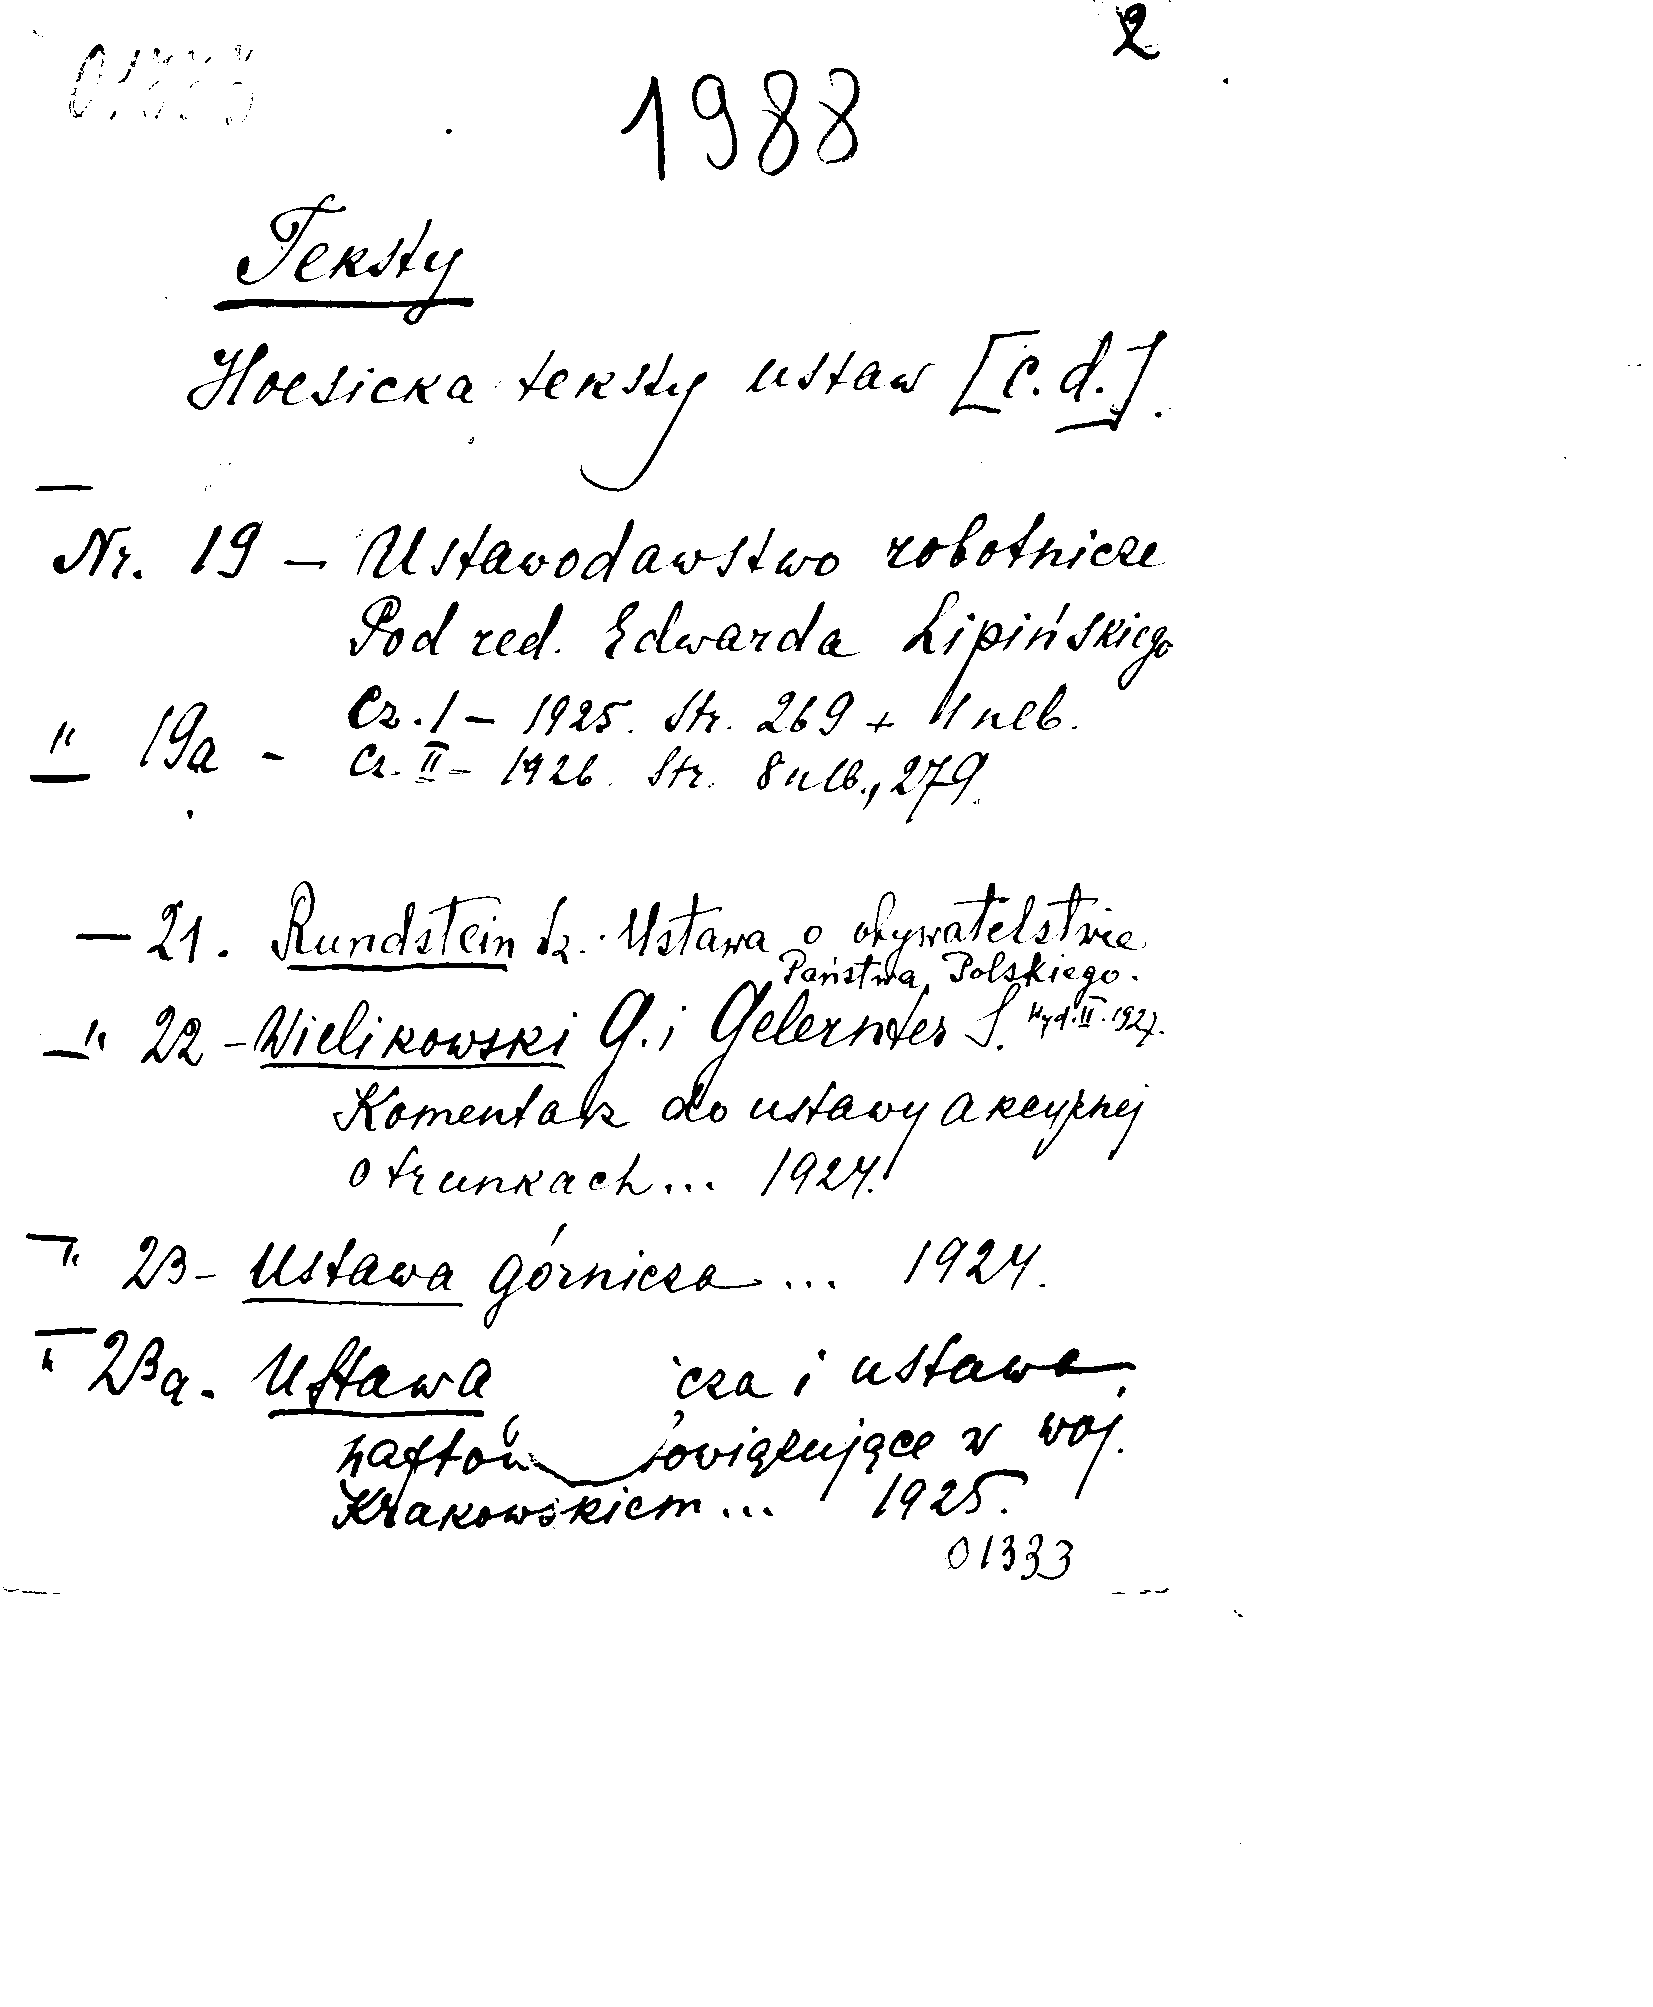 2
1988
Teksty
Hoesicka teksty ustaw [c.d.]
Nr. 19 – Ustawodawstwo robotnicze
Pod red. Edwarda Lipińskiego
Cz. I – 1925. Str. 269 + 11 nlb.
" 19a - Cz. II – 1926. Str. 8 nlb., 279.
— 21. Rundstein Sz. Ustawa o obywatelstwie
Państwa Polskiego.
Wyd. II. 1927.
— " 22 – Wielikowski G. i Gelernter S.
Komentarz do ustawy akcyjnej
o trunkach... 1924.
— " 23 – Ustawa górnicza ... 1924.
— " 23a. Ustawa icza i ustawa
naftow owiązujące w woj.
Krakowskiem... 1925.
01333